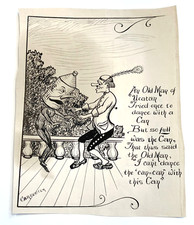 An Old Man of
Yucatan
Tried once to
dance with a
Can
But so full
was the Can,
That thus said
the Old Man,
"I can't dance
the "can-can" with
this Can"